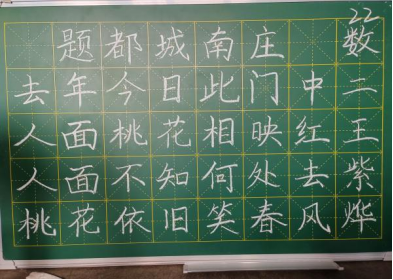 题都城南庄
去年今日此门中
人面桃花相映红
人面不知何处去
桃花依旧笑春风
22数二王紫烨